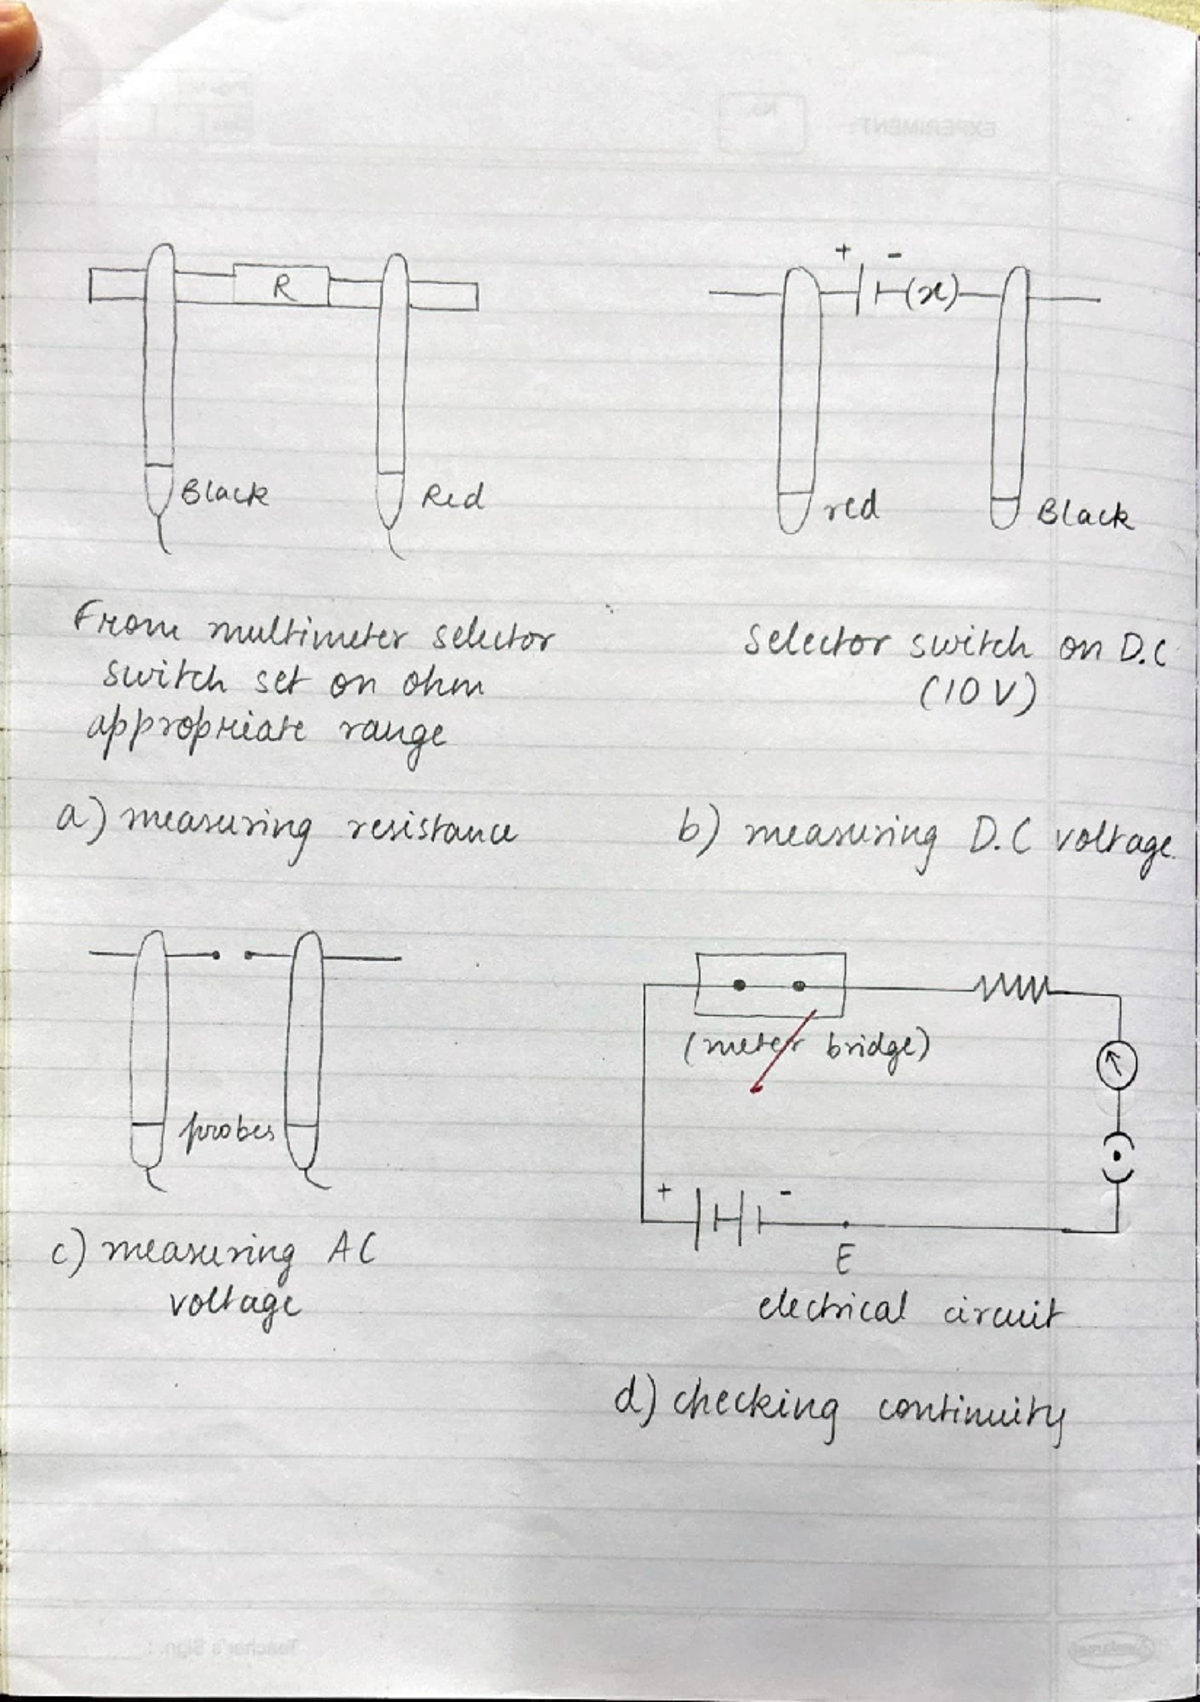 R
Black
Red
+ -
(x)
red
Black
From multimeter selector
switch set on ohm
appropriate range
a) measuring resistance
selector switch on D.C
(10 V)
b) measuring D.C voltage
probes
c) measuring AC
voltage
(meter bridge)
+ -
E
electrical circuit
d) checking continuity
EXPERIMENT:
No.
Teacher's Sign.: